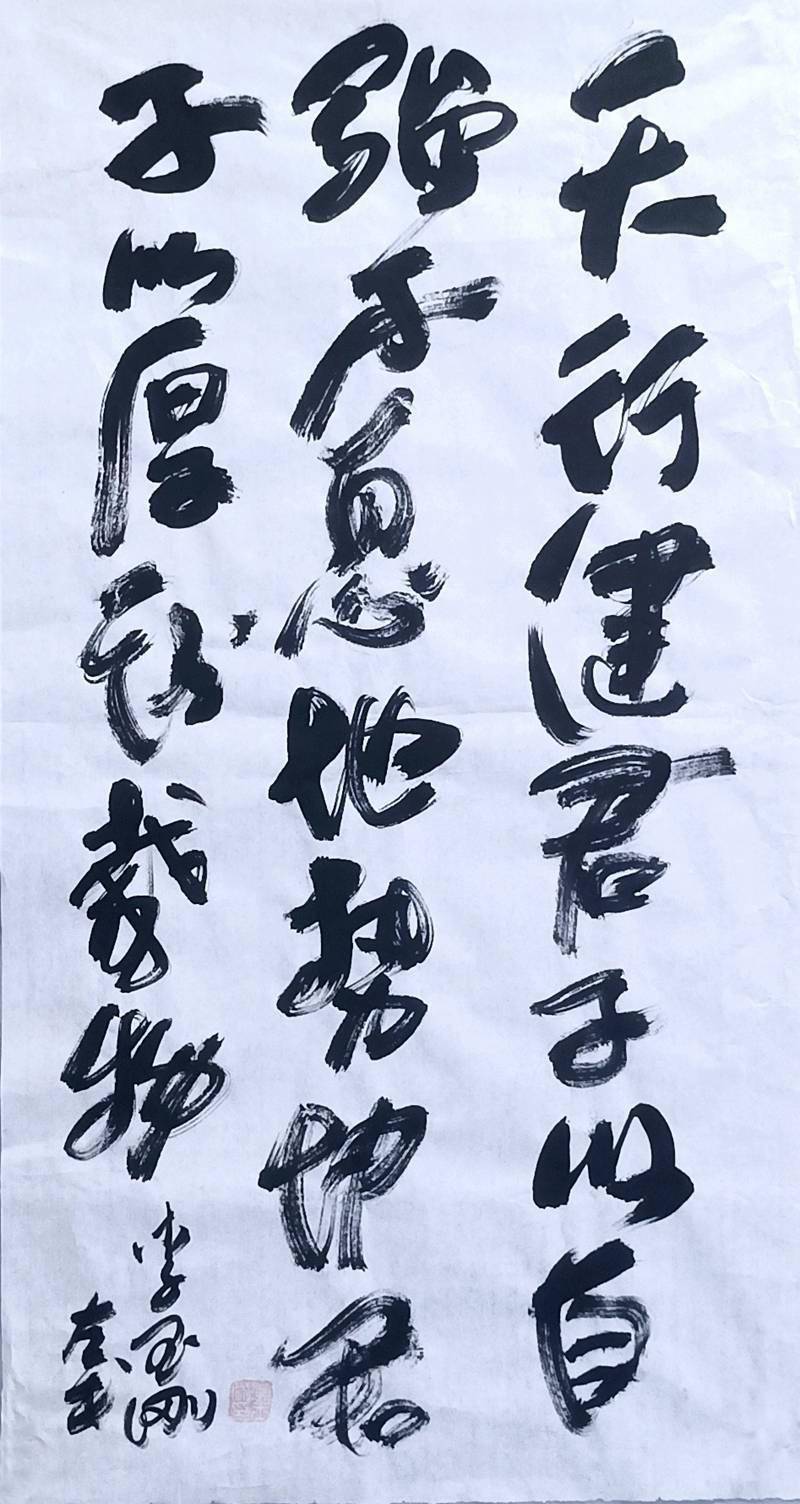 天行健君子以自
强不息地势坤君
子以厚德载物
李玉刚